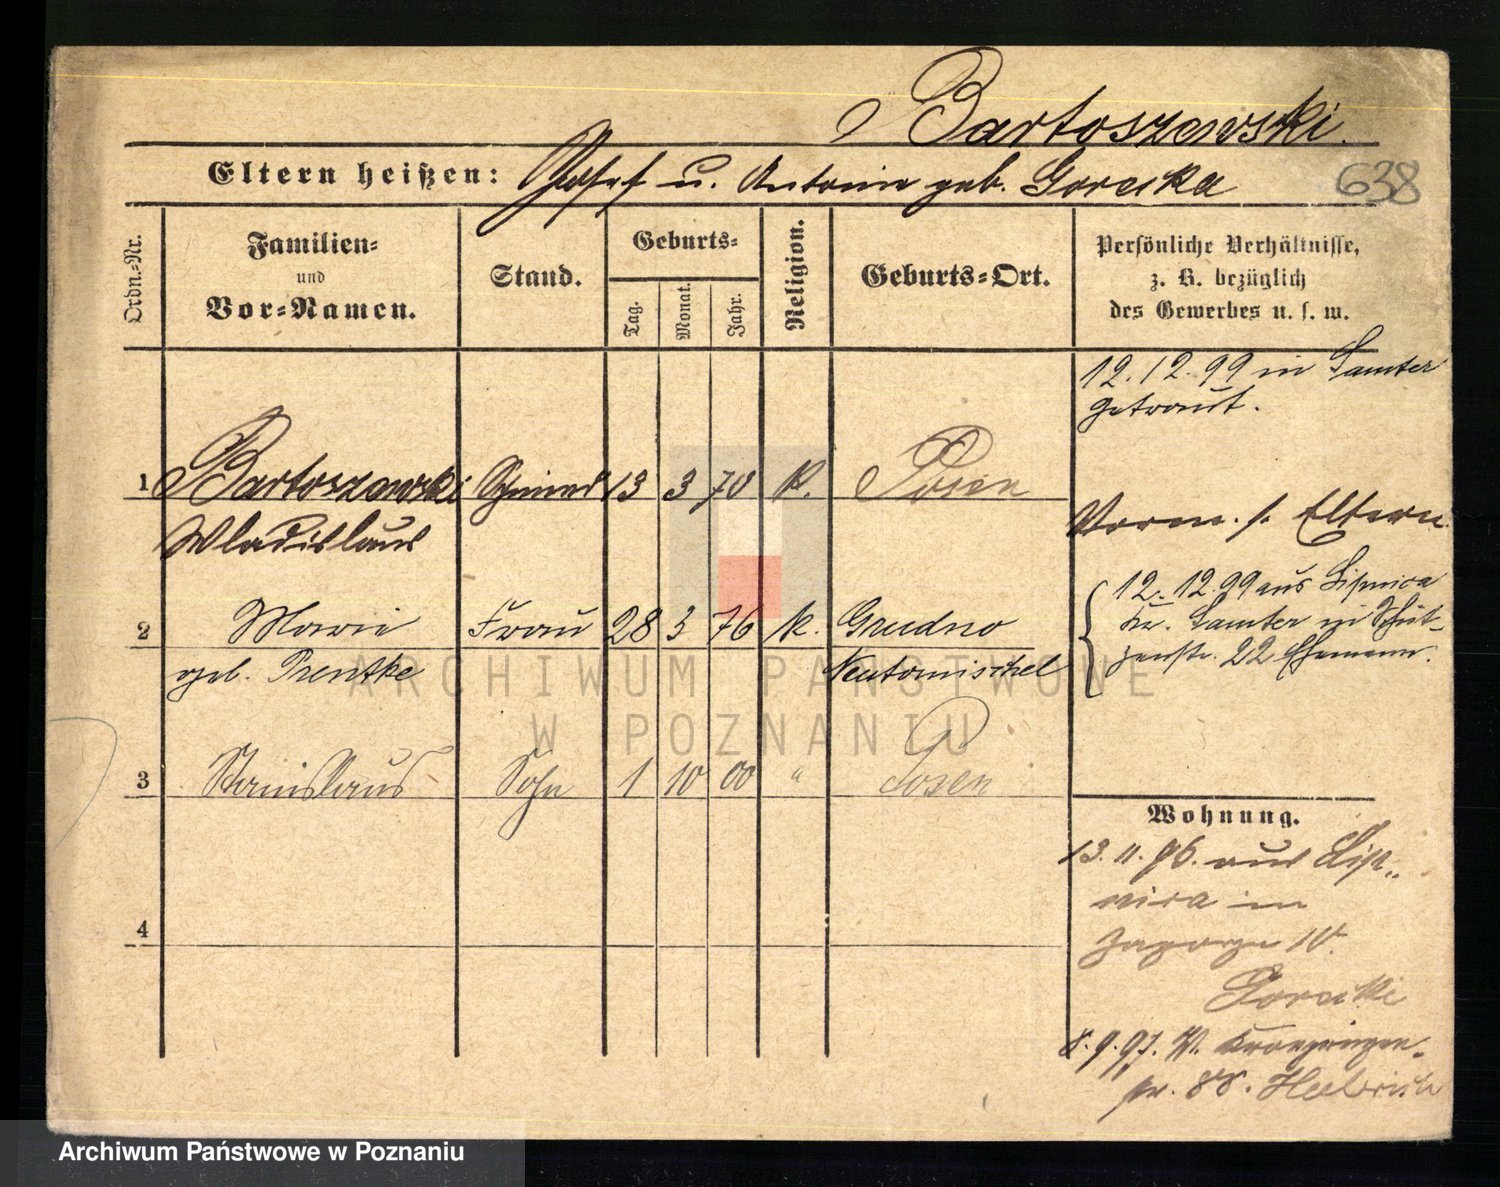 Bartoszewski.
Eltern heißen: Josef u. Antonie geb. Gorecka
638
Ordn.-Nr.
Familien-
und
Vor-Namen.
Stand.
Geburts-
Tag.
Monat.
Jahr.
Religion.
Geburts-Ort.
Persönliche Verhältnisse,
z. B. bezüglich
des Gewerbes u. s. w.
12. 12. 99 in Samter
getraut.
1 Bartoszewski Schmied 13 3 70 k. Posen
Wladislaus
Vorm. s. Eltern
2 Marie Frau 28 3 76 k. Grudno
geb. Prentke Neutomischel
12. 12. 99 aus Lipnica
Kr. Samter in Schüt-
zenstr. 22 Ehemann.
3 Stanislaus Sohn 1 10 00 " Posen
4
Wohnung.
13. 11. 96. aus Lip-
nica in
Zagorze 10.
Gorecki
8. 9. 97. W. Kronprinzen-
str. 88.
ARCHIWUM PAŃSTWOWE
W POZNANIU
Archiwum Państwowe w Poznaniu